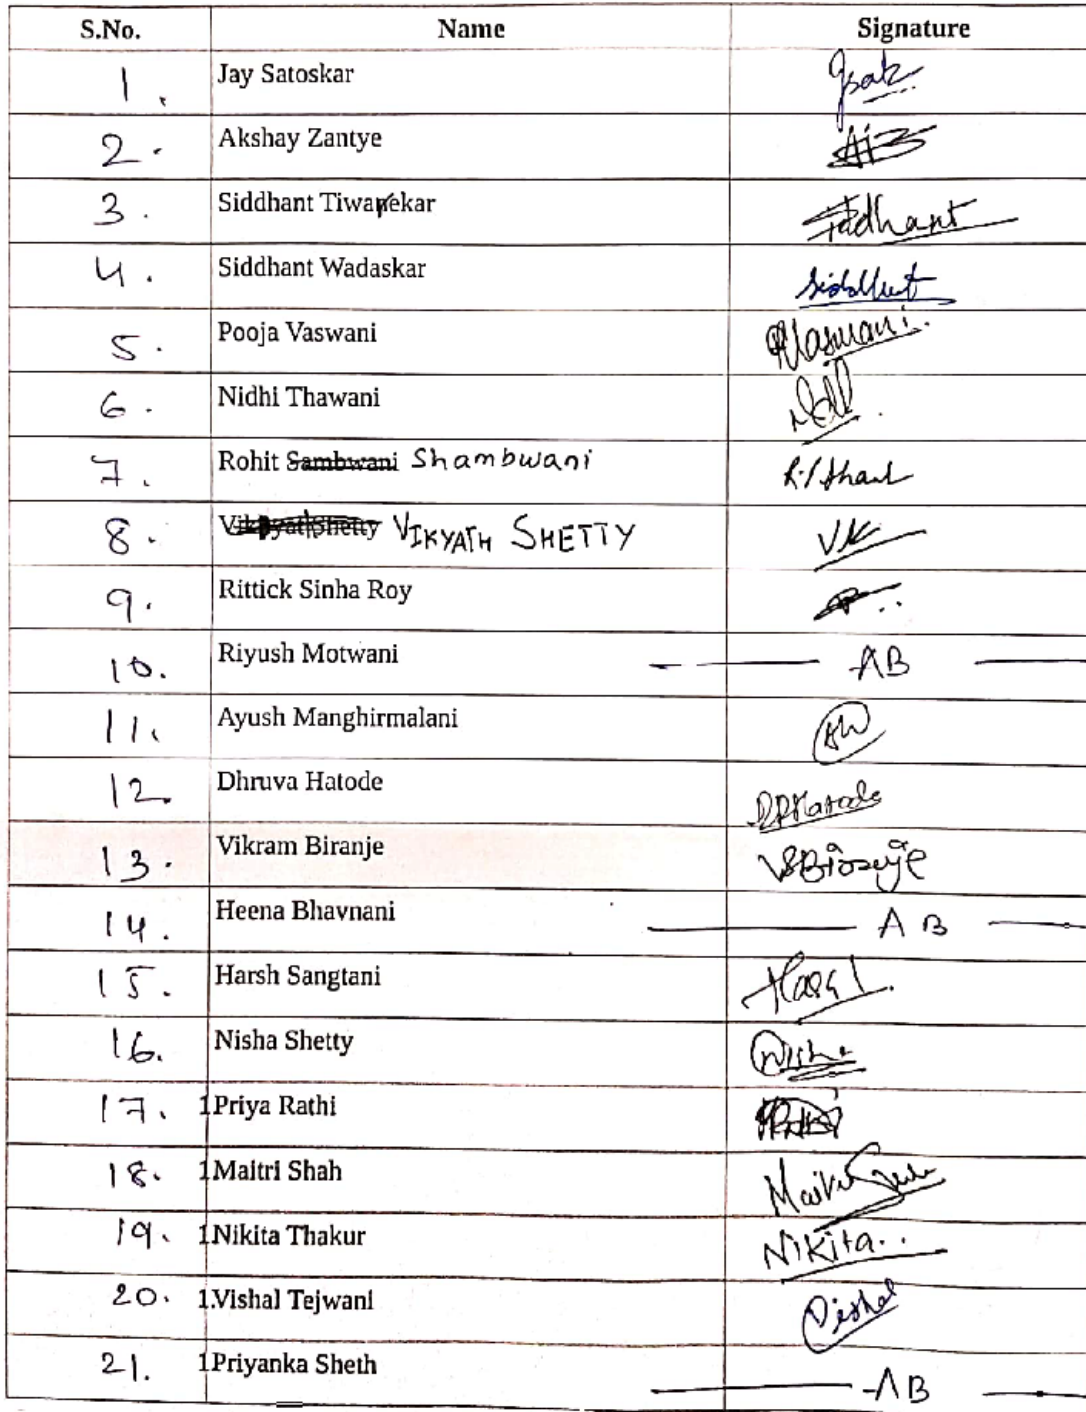 S.No. Name Signature
1. Jay Satoskar Jsatz
2. Akshay Zantye
3. Siddhant Tiwarekar Siddhant
4. Siddhant Wadaskar Siddhant
5. Pooja Vaswani PVaswani.
6. Nidhi Thawani
7. Rohit Sambwani Shambwani
8. Vikhyat Shetty VIKYATH SHETTY VK
9. Rittick Sinha Roy
10. Riyush Motwani AB
11. Ayush Manghirmalani
12. Dhruva Hatode DPHatode
13. Vikram Biranje VSBiranje
14. Heena Bhavnani AB
15. Harsh Sangtani Harsh.
16. Nisha Shetty Nisha
17. 1Priya Rathi
18. 1Maitri Shah Maitri Shah
19. 1Nikita Thakur Nikita..
20. 1.Vishal Tejwani Vishal
21. 1Priyanka Sheth AB